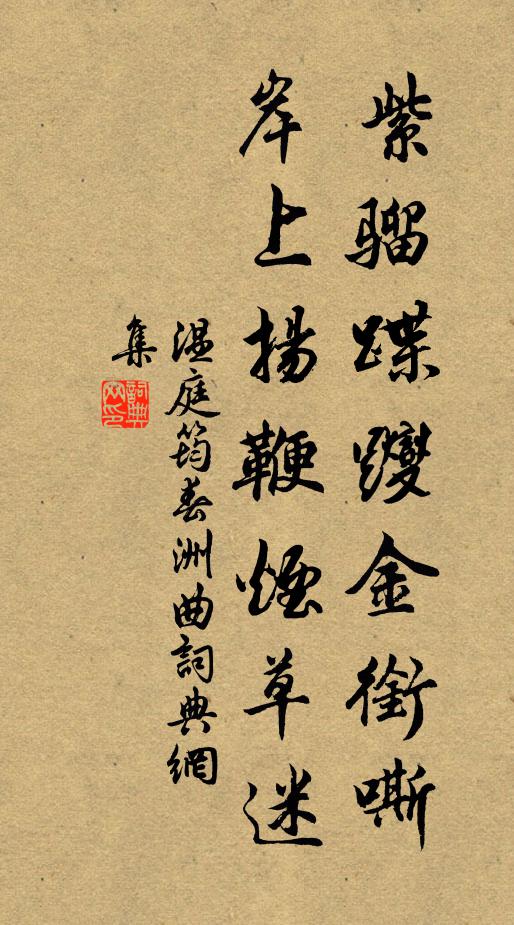 紫騮蹀躞金銜嘶
岸上揚鞭煙草迷
溫庭筠春洲曲詞典網
集
詞典網印